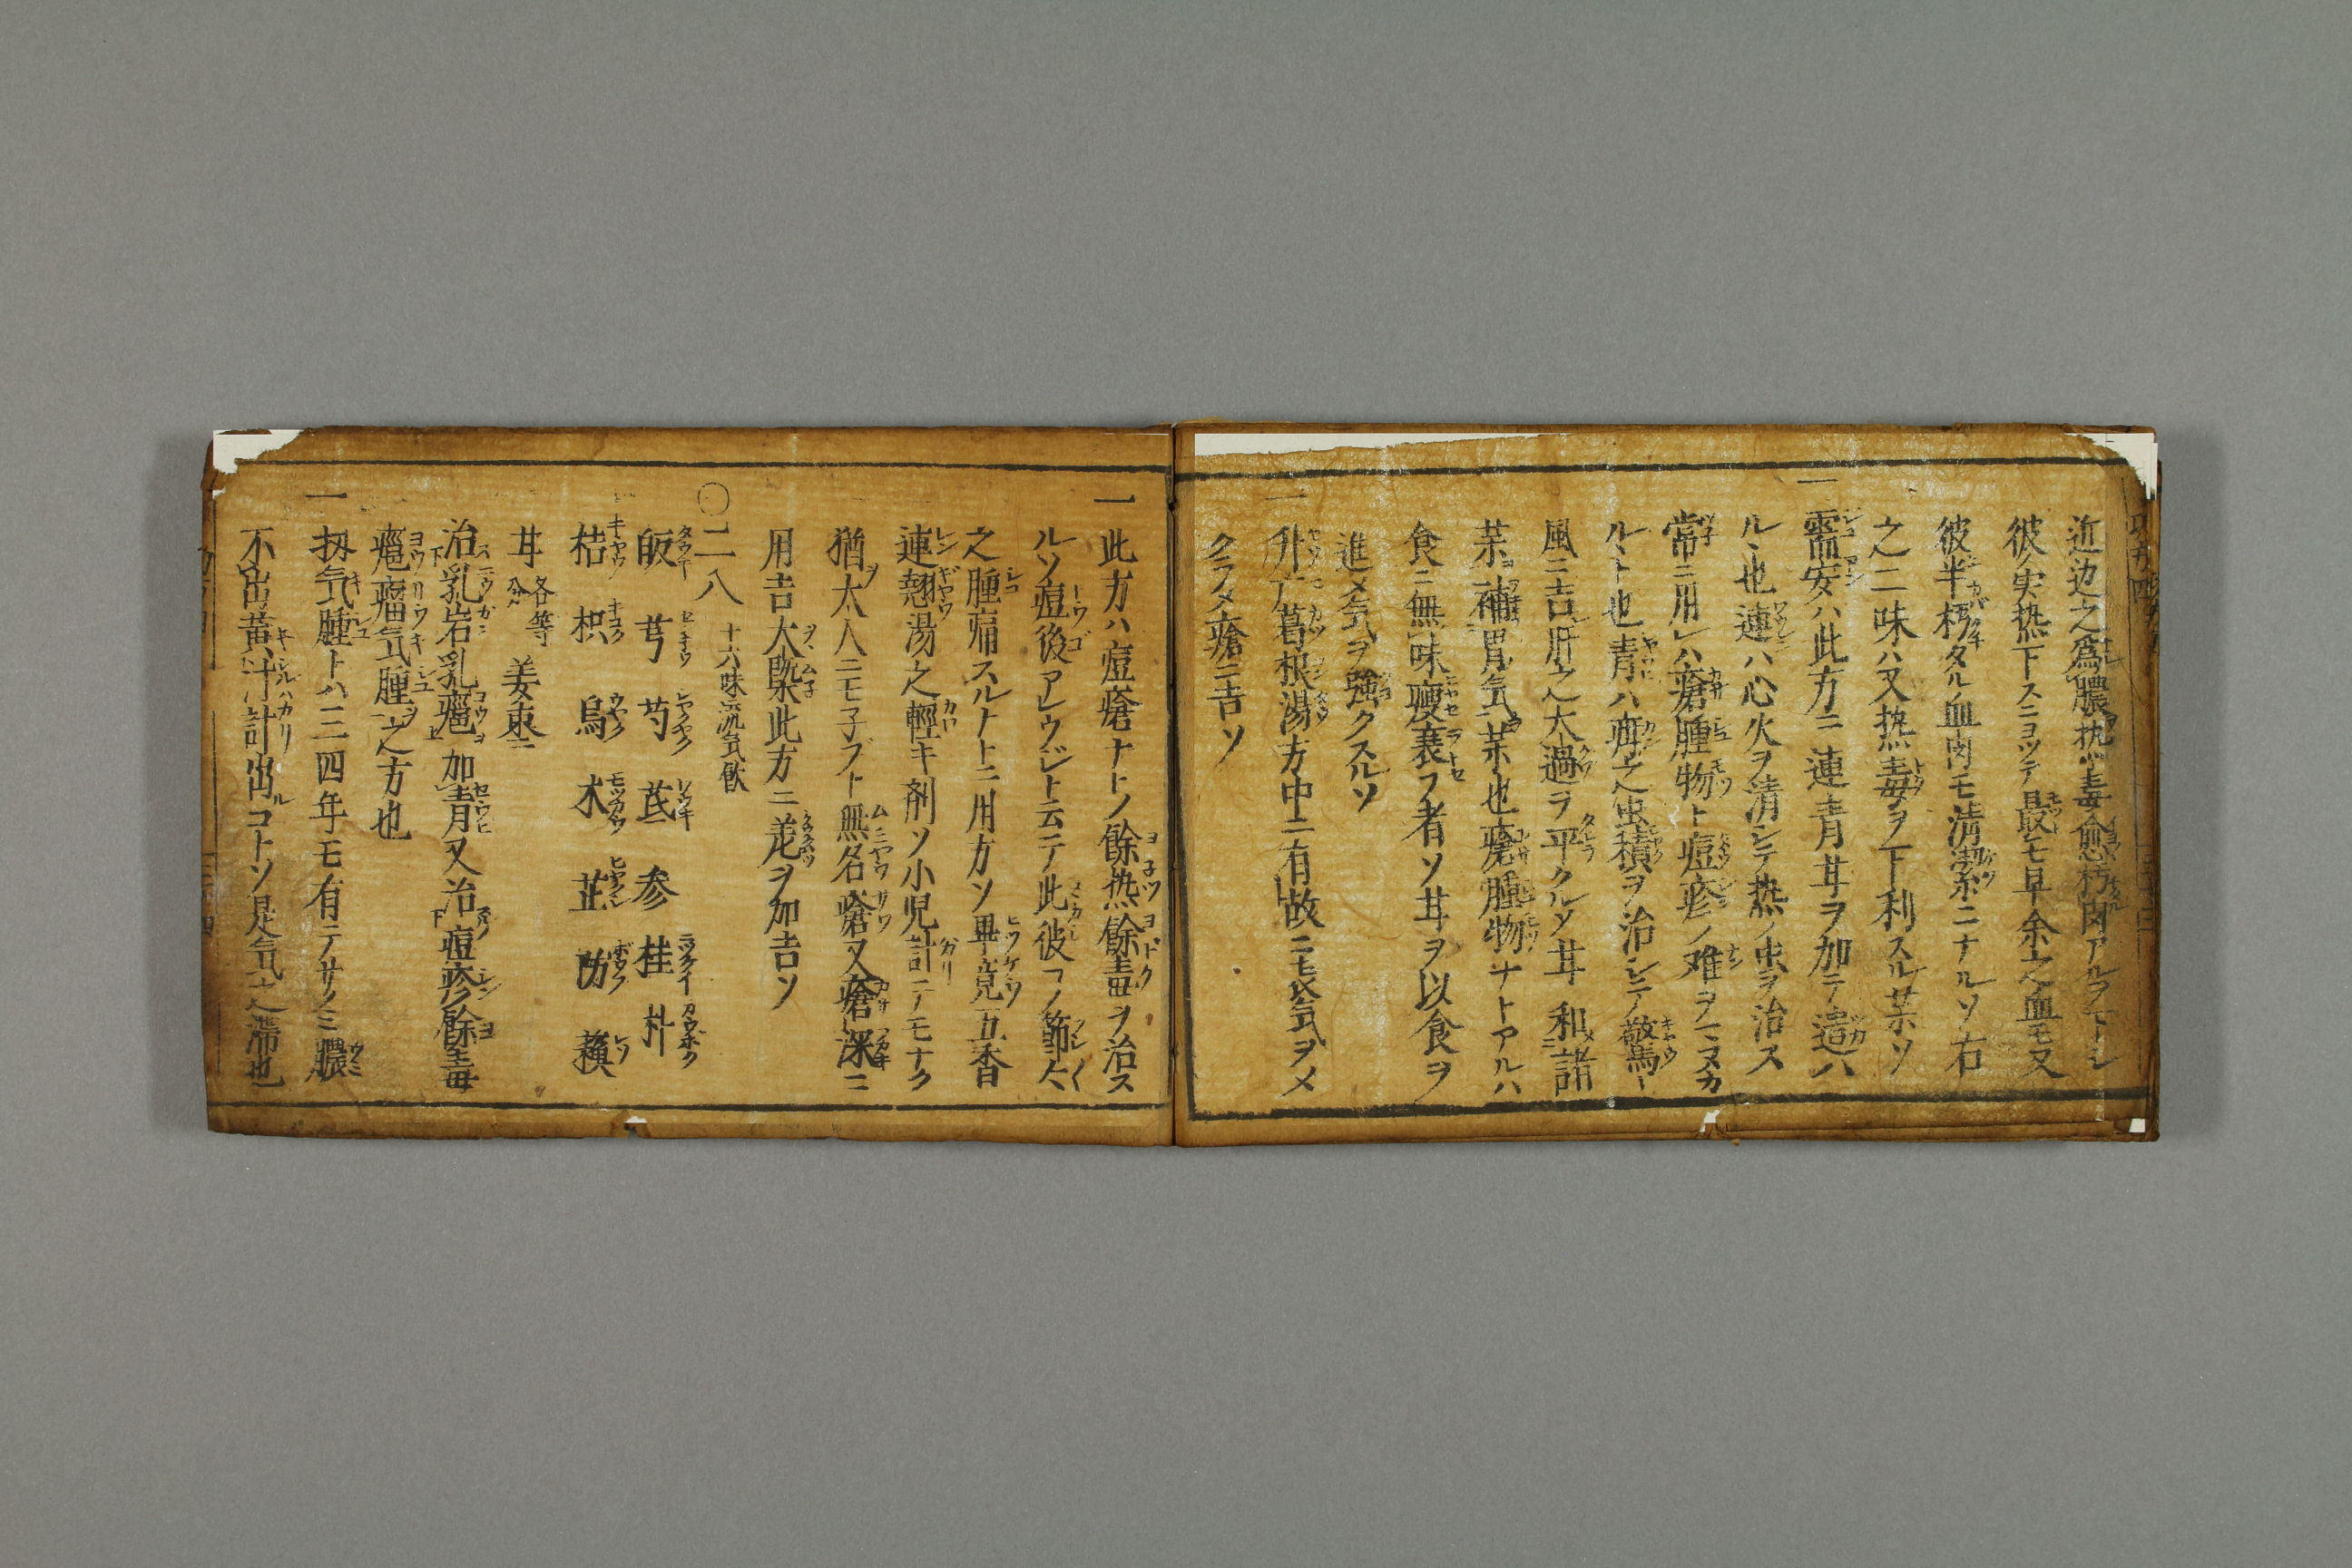 近辺之為膿熱毒愈朽肉アルヲ下シ
彼実热下スニヨツテ最モ早余之血モ又
彼半朽タル血肉モ清潔ニナルソ右
之二味ハ又热毒ヲ下利スル茱ソ
一需安ハ此方ニ連青耳ヲ加テ遣ハ
ル丶也連ハ心火ヲ清シテ热ノ虫ヲ治ス
常ニ用レハ瘡腫物ト痘疹ノ难ヲマヌカ
ル丶ト也青ハ疳之虫積ヲ治シテ驚
風ニ吉肝之大過ヲ平クルソ耳和諸
茱補胃気茱也瘡腫物ナトアルハ
食ニ無味痩衰フ者ソ耳ヲ以食ヲ
進メ気ヲ強クスルソ
一升葛根湯方中ニ有故ニ表気ヲメ
クラメ瘡ニ吉ソ
一此方ハ痘瘡ナトノ餘热餘毒ヲ治ス
ルソ痘後アレウジト云テ此彼コノ節々
之腫痛スルナトニ用方ソ畢竟五香
連翹湯之輕キ剤ソ小児計ニテモナク
猶大人ニモ子ブト無名瘡又瘡深ニ
用吉大槩此方ニ羗ヲ加吉ソ
〇二八 十六味流気飲
皈 芎 芍 芪 参 桂 朴
桔 枳 烏 木 芷 防 蘓
耳 各等分 姜 枣ニ
治乳岩乳癰加青又治痘疹餘毒
癰瘤気腫之方也
一扨気腫トハ三四年モ有テサノミ膿
不出黄汁計出ルコトソ是気之滞也